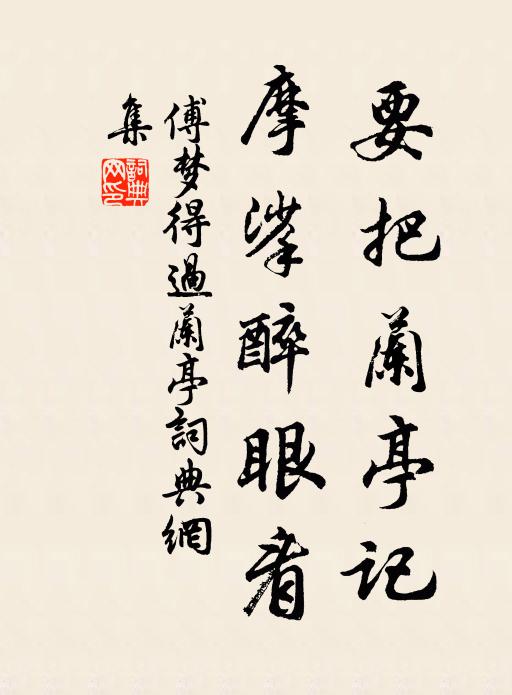 要把蘭亭記
摩挲醉眼看
傅梦得過蘭亭詞典網
集
詞典
网印